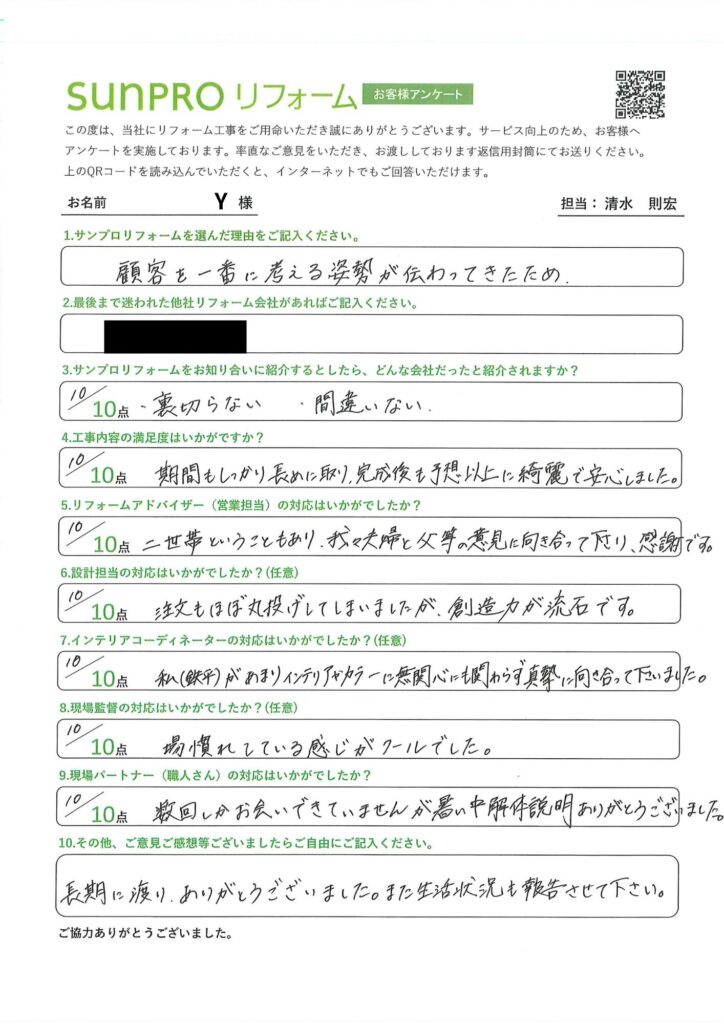 SUNPRO リフォーム お客様アンケート
この度は、当社にリフォーム工事をご用命いただき誠にありがとうございます。サービス向上のため、お客様へ
アンケートを実施しております。率直なご意見をいただき、お渡ししております返信用封筒にてお送りください。
上のQRコードを読み込んでいただくと、インターネットでもご回答いただけます。
お名前 Y 様 担当：清水 則宏
1.サンプロリフォームを選んだ理由をご記入ください。
顧客を一番に考える姿勢が伝わってきたため.
2.最後まで迷われた他社リフォーム会社があればご記入ください。
3.サンプロリフォームをお知り合いに紹介するとしたら、どんな会社だったと紹介されますか？
10/10点 ・裏切らない ・間違いない.
4.工事内容の満足度はいかがですか？
10/10点 期間もしっかり長めに取り、完成後も予想以上に綺麗で安心しました。
5.リフォームアドバイザー（営業担当）の対応はいかがでしたか？
10/10点 二世帯ということもあり、我々夫婦と父等の意見に向き合って下り、感謝です。
6.設計担当の対応はいかがでしたか？(任意)
10/10点 注文もほぼ丸投げしてしまいましたが、創造力が流石です。
7.インテリアコーディネーターの対応はいかがでしたか？(任意)
10/10点 私(鉄平)があまりインテリアやカラーに無関心にも関わらず真摯に向き合って下さいました。
8.現場監督の対応はいかがでしたか？(任意)
10/10点 場慣れしている感じがクールでした。
9.現場パートナー（職人さん）の対応はいかがでしたか？
10/10点 数回しかお会いできていませんが暑い中解体説明ありがとうございました。
10.その他、ご意見ご感想等ございましたらご自由にご記入ください。
長期に渡り、ありがとうございました。また生活状況も報告させて下さい。
ご協力ありがとうございました。